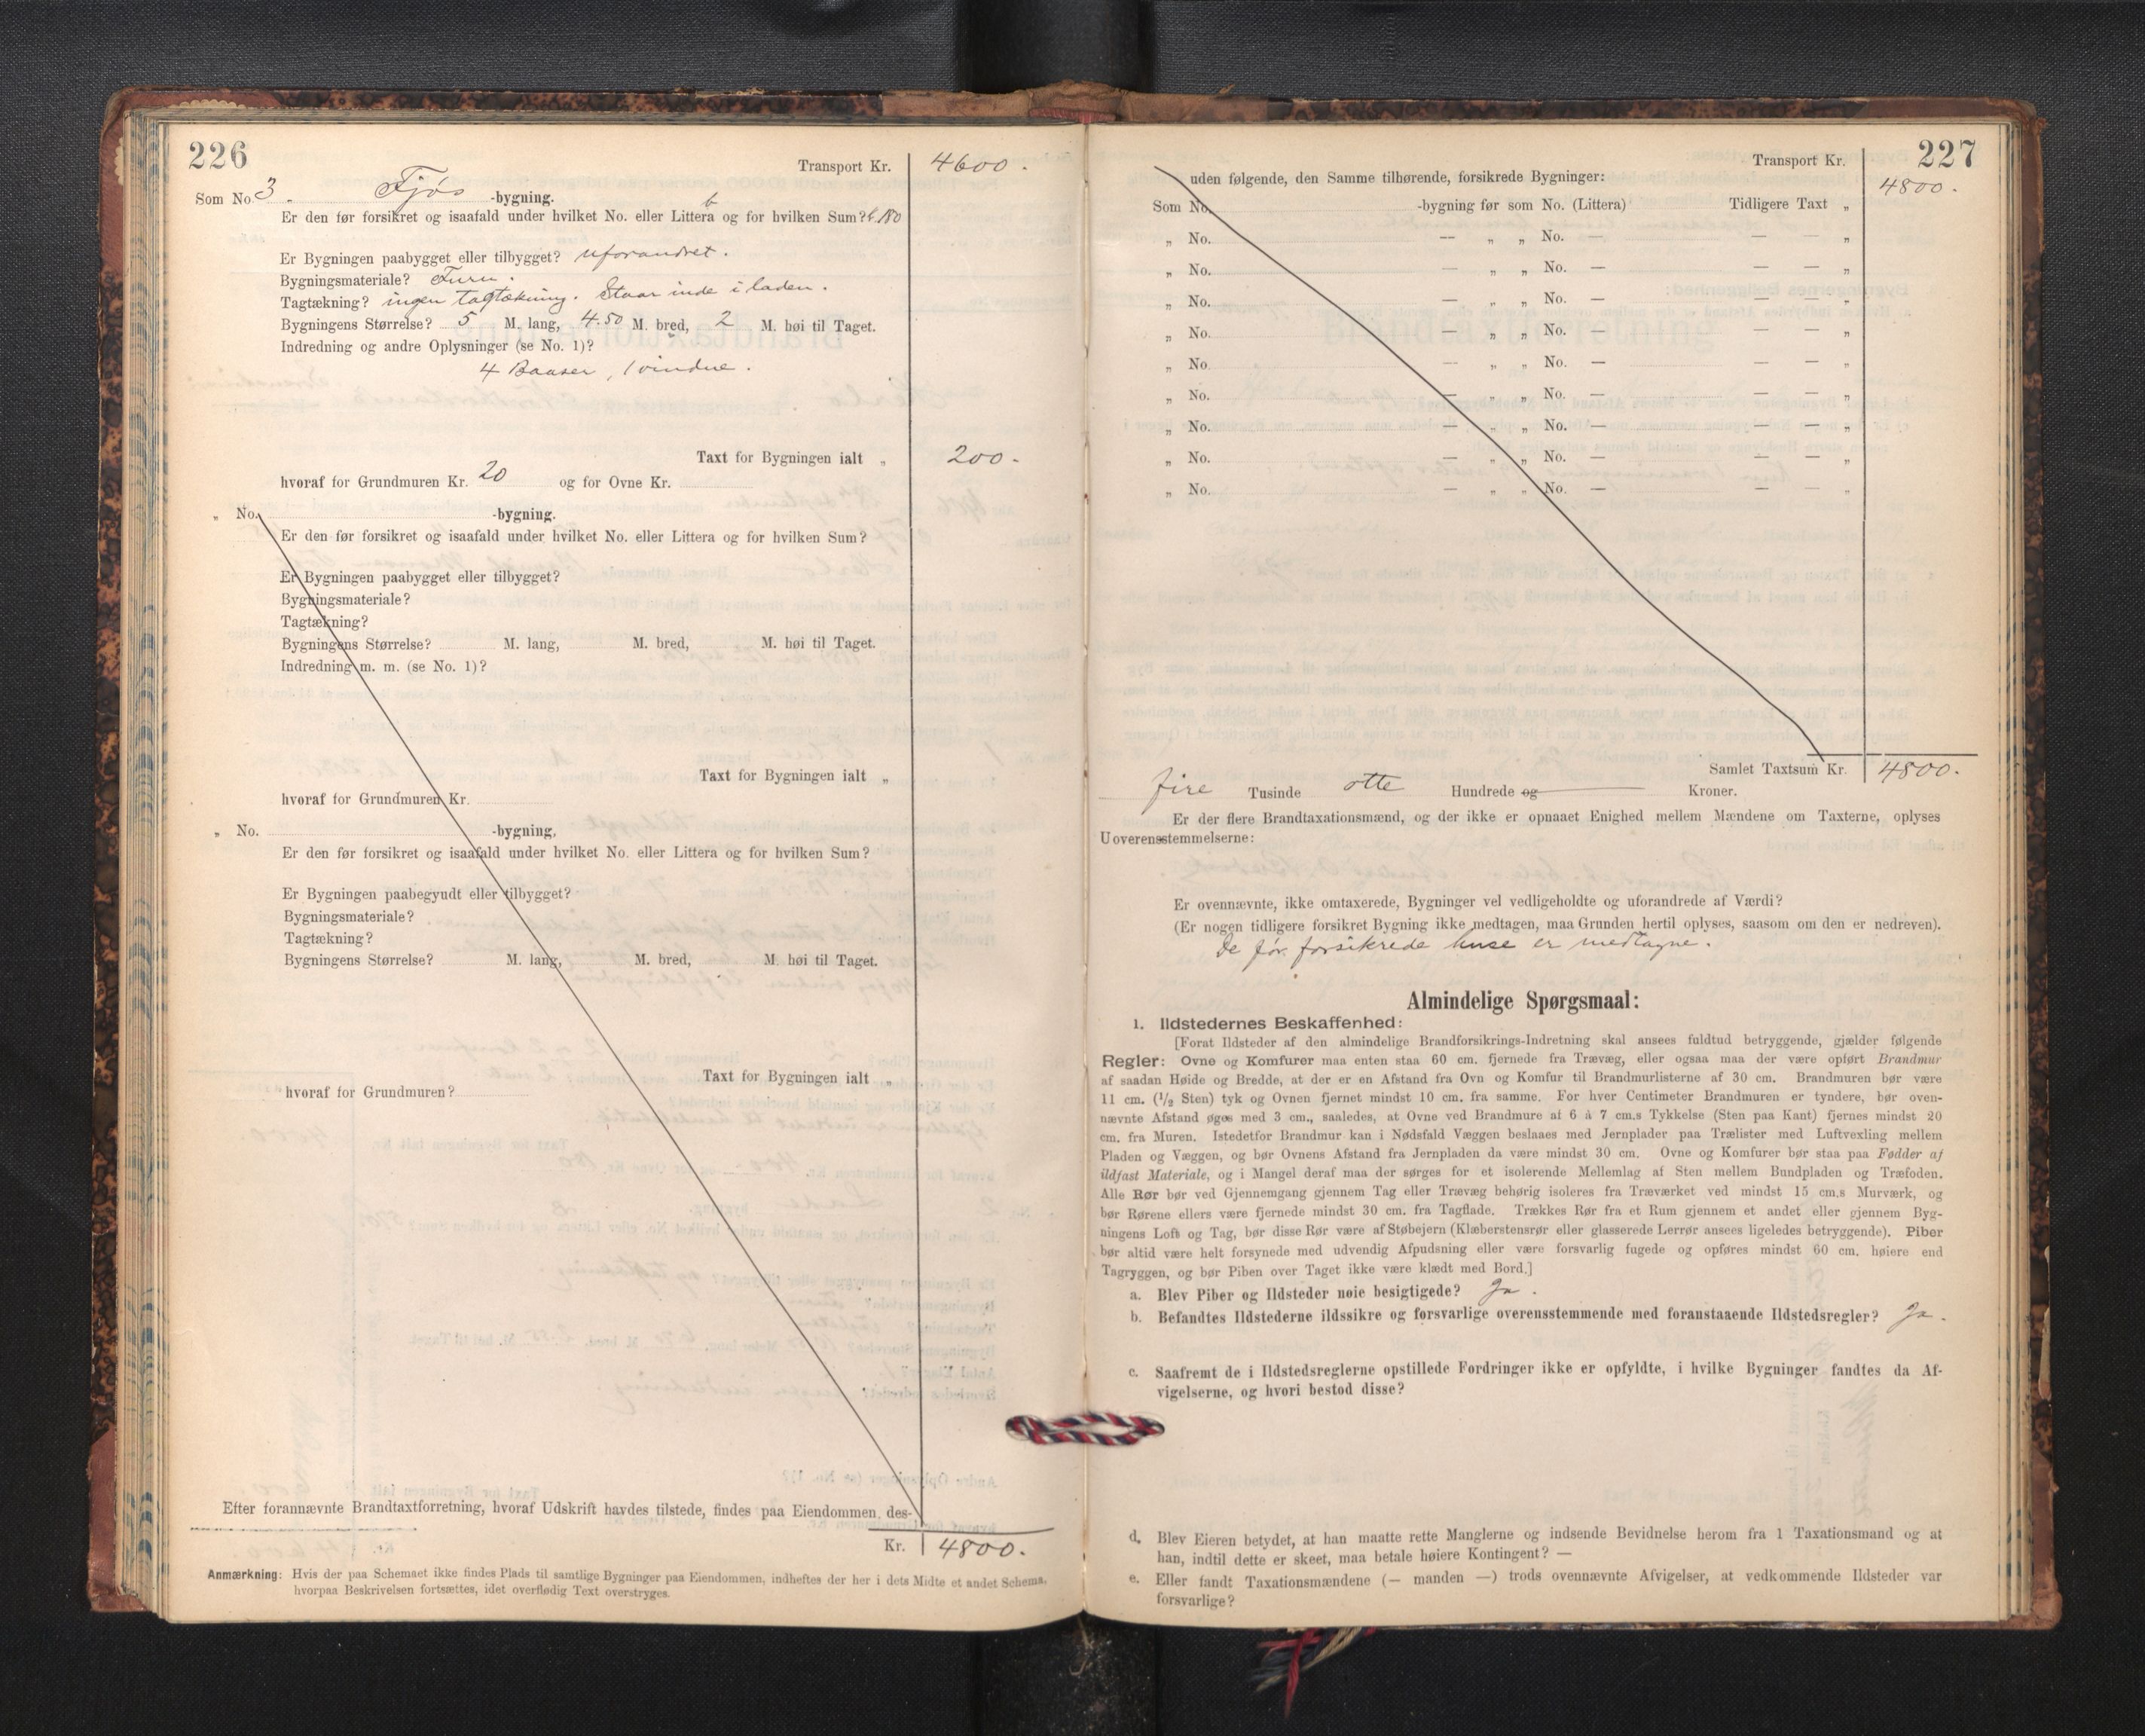 226
Transport Kr. 4600.
Som No 3 Fjøs -bygning.
Er den før forsikret og isaafald under hvilket No. eller Littera og for hvilken Sum? b 180
Er Bygningen paabygget eller tilbygget? uforandret.
Bygningsmateriale? Furu.
Tagtækning? ingen tagtækning. Staar inde i laden.
Bygningens Størrelse? 5 M. lang, 4.50 M. bred, 2 M. høi til Taget.
Indredning og andre Oplysninger (se No. 1)?
4 Baaser, 1 vindue.
Taxt for Bygningen ialt „ 200.
hvoraf for Grundmuren Kr. 20 og for Ovne Kr.
„ No. -bygning.
Er den før forsikret og isaafald under hvilket No. eller Littera og for hvilken Sum?
Er Bygningen paabygget eller tilbygget?
Bygningsmateriale?
Tagtækning?
Bygningens Størrelse? M. lang, M. bred, M. høi til Taget.
Indredning m. m. (se No. 1)?
Taxt for Bygningen ialt „
hvoraf for Grundmuren Kr.
„ No. -bygning,
Er den før forsikret og isaafald under hvilket No. eller Littera og for hvilken Sum?
Er Bygningen paabegyndt eller tilbygget?
Bygningsmateriale?
Tagtækning?
Bygningens Størrelse? M. lang, M. bred, M. høi til Taget.
Taxt for Bygningen ialt „
hvoraf for Grundmuren?
Efter forannævnte Brandtaxtforretning, hvoraf Udskrift havdes tilstede, findes paa Eiendommen, des-
Kr. 4800.
Anmærkning: Hvis der paa Schemaet ikke findes Plads til samtlige Bygninger paa Eiendommen, indheftes der her i dets Midte et andet Schema,
hvorpaa Beskrivelsen fortsættes, idet overflødig Text overstryges.
227
Transport Kr. 4800.
uden følgende, den Samme tilhørende, forsikrede Bygninger:
Som No. -bygning før som No. (Littera) Tidligere Taxt „
„ No. — „ „ No. — — — „
„ No. — „ „ No. — — — „
„ No. — „ „ No. — — — „
„ No. — „ „ No. — — — „
„ No. — „ „ No. — — — „
„ No. — „ „ No. — — — „
„ No. — „ „ No. — — — „
„ No. — „ „ No. — — — „
„ No. — „ „ No. — — — „
Samlet Taxtsum Kr. 4800.
fire Tusinde otte Hundrede og Kroner.
Er der flere Brandtaxationsmænd, og der ikke er opnaaet Enighed mellem Mændene om Taxterne, oplyses
Uoverensstemmelserne:
Er ovennævnte, ikke omtaxerede, Bygninger vel vedligeholdte og uforandrede af Værdi?
(Er nogen tidligere forsikret Bygning ikke medtagen, maa Grunden hertil oplyses, saasom om den er nedreven).
De før forsikrede huse er medtagne.
Almindelige Spørgsmaal:
1. Ildstedernes Beskaffenhed:
[Forat Ildsteder af den almindelige Brandforsikrings-Indretning skal ansees fuldtud betryggende, gjælder følgende
Regler: Ovne og Komfurer maa enten staa 60 cm. fjernede fra Trævæg, eller ogsaa maa der være opført Brandmur
af saadan Høide og Bredde, at der er en Afstand fra Ovn og Komfur til Brandmurlisterne af 30 cm. Brandmuren bør være
11 cm. (1/2 Sten) tyk og Ovnen fjernet mindst 10 cm. fra samme. For hver Centimeter Brandmuren er tyndere, bør oven-
nævnte Afstand øges med 3 cm., saaledes, at Ovne ved Brandmure af 6 à 7 cm.s Tykkelse (Sten paa Kant) fjernes mindst 20
cm. fra Muren. Istedetfor Brandmur kan i Nødsfald Væggen beslaaes med Jernplader paa Trælister med Luftvexling mellem
Pladen og Væggen, og bør Ovnens Afstand fra Jernpladen da være mindst 30 cm. Ovne og Komfurer bør staa paa Fødder af
ildfast Materiale, og i Mangel deraf maa der sørges for et isolerende Mellemlag af Sten mellem Bundpladen og Træfoden.
Alle Rør bør ved Gjennemgang gjennem Tag eller Trævæg behørig isoleres fra Træværket ved mindst 15 cm.s Murværk, og
bør Rørene ellers være fjernede mindst 30 cm. fra Tagflade. Trækkes Rør fra et Rum gjennem et andet eller gjennem Byg-
ningens Loft og Tag, bør disse Rør være af Støbejern (Klæberstensrør eller glasserede Lerrør ansees ligeledes betryggende). Piber
bør altid være helt forsynede med udvendig Afpudsning eller være forsvarlig fugede og opføres mindst 60 cm. høiere end
Tagryggen, og bør Piben over Taget ikke være klædt med Bord.]
a. Blev Piber og Ildsteder nøie besigtigede? Ja.
b. Befandtes Ildstederne ildssikre og forsvarlige overensstemmende med foranstaaende Ildstedsregler? Ja.
c. Saafremt de i Ildstedsreglerne opstillede Fordringer ikke er opfyldte, i hvilke Bygninger fandtes da Af-
vigelserne, og hvori bestod disse?
d. Blev Eieren betydet, at han maatte rette Manglerne og indsende Bevidnelse herom fra 1 Taxationsmand og at
han, indtil dette er skeet, maa betale høiere Kontingent? —
e. Eller fandt Taxationsmændene (— manden —) trods ovennævnte Afvigelser, at vedkommende Ildsteder var
forsvarlige?